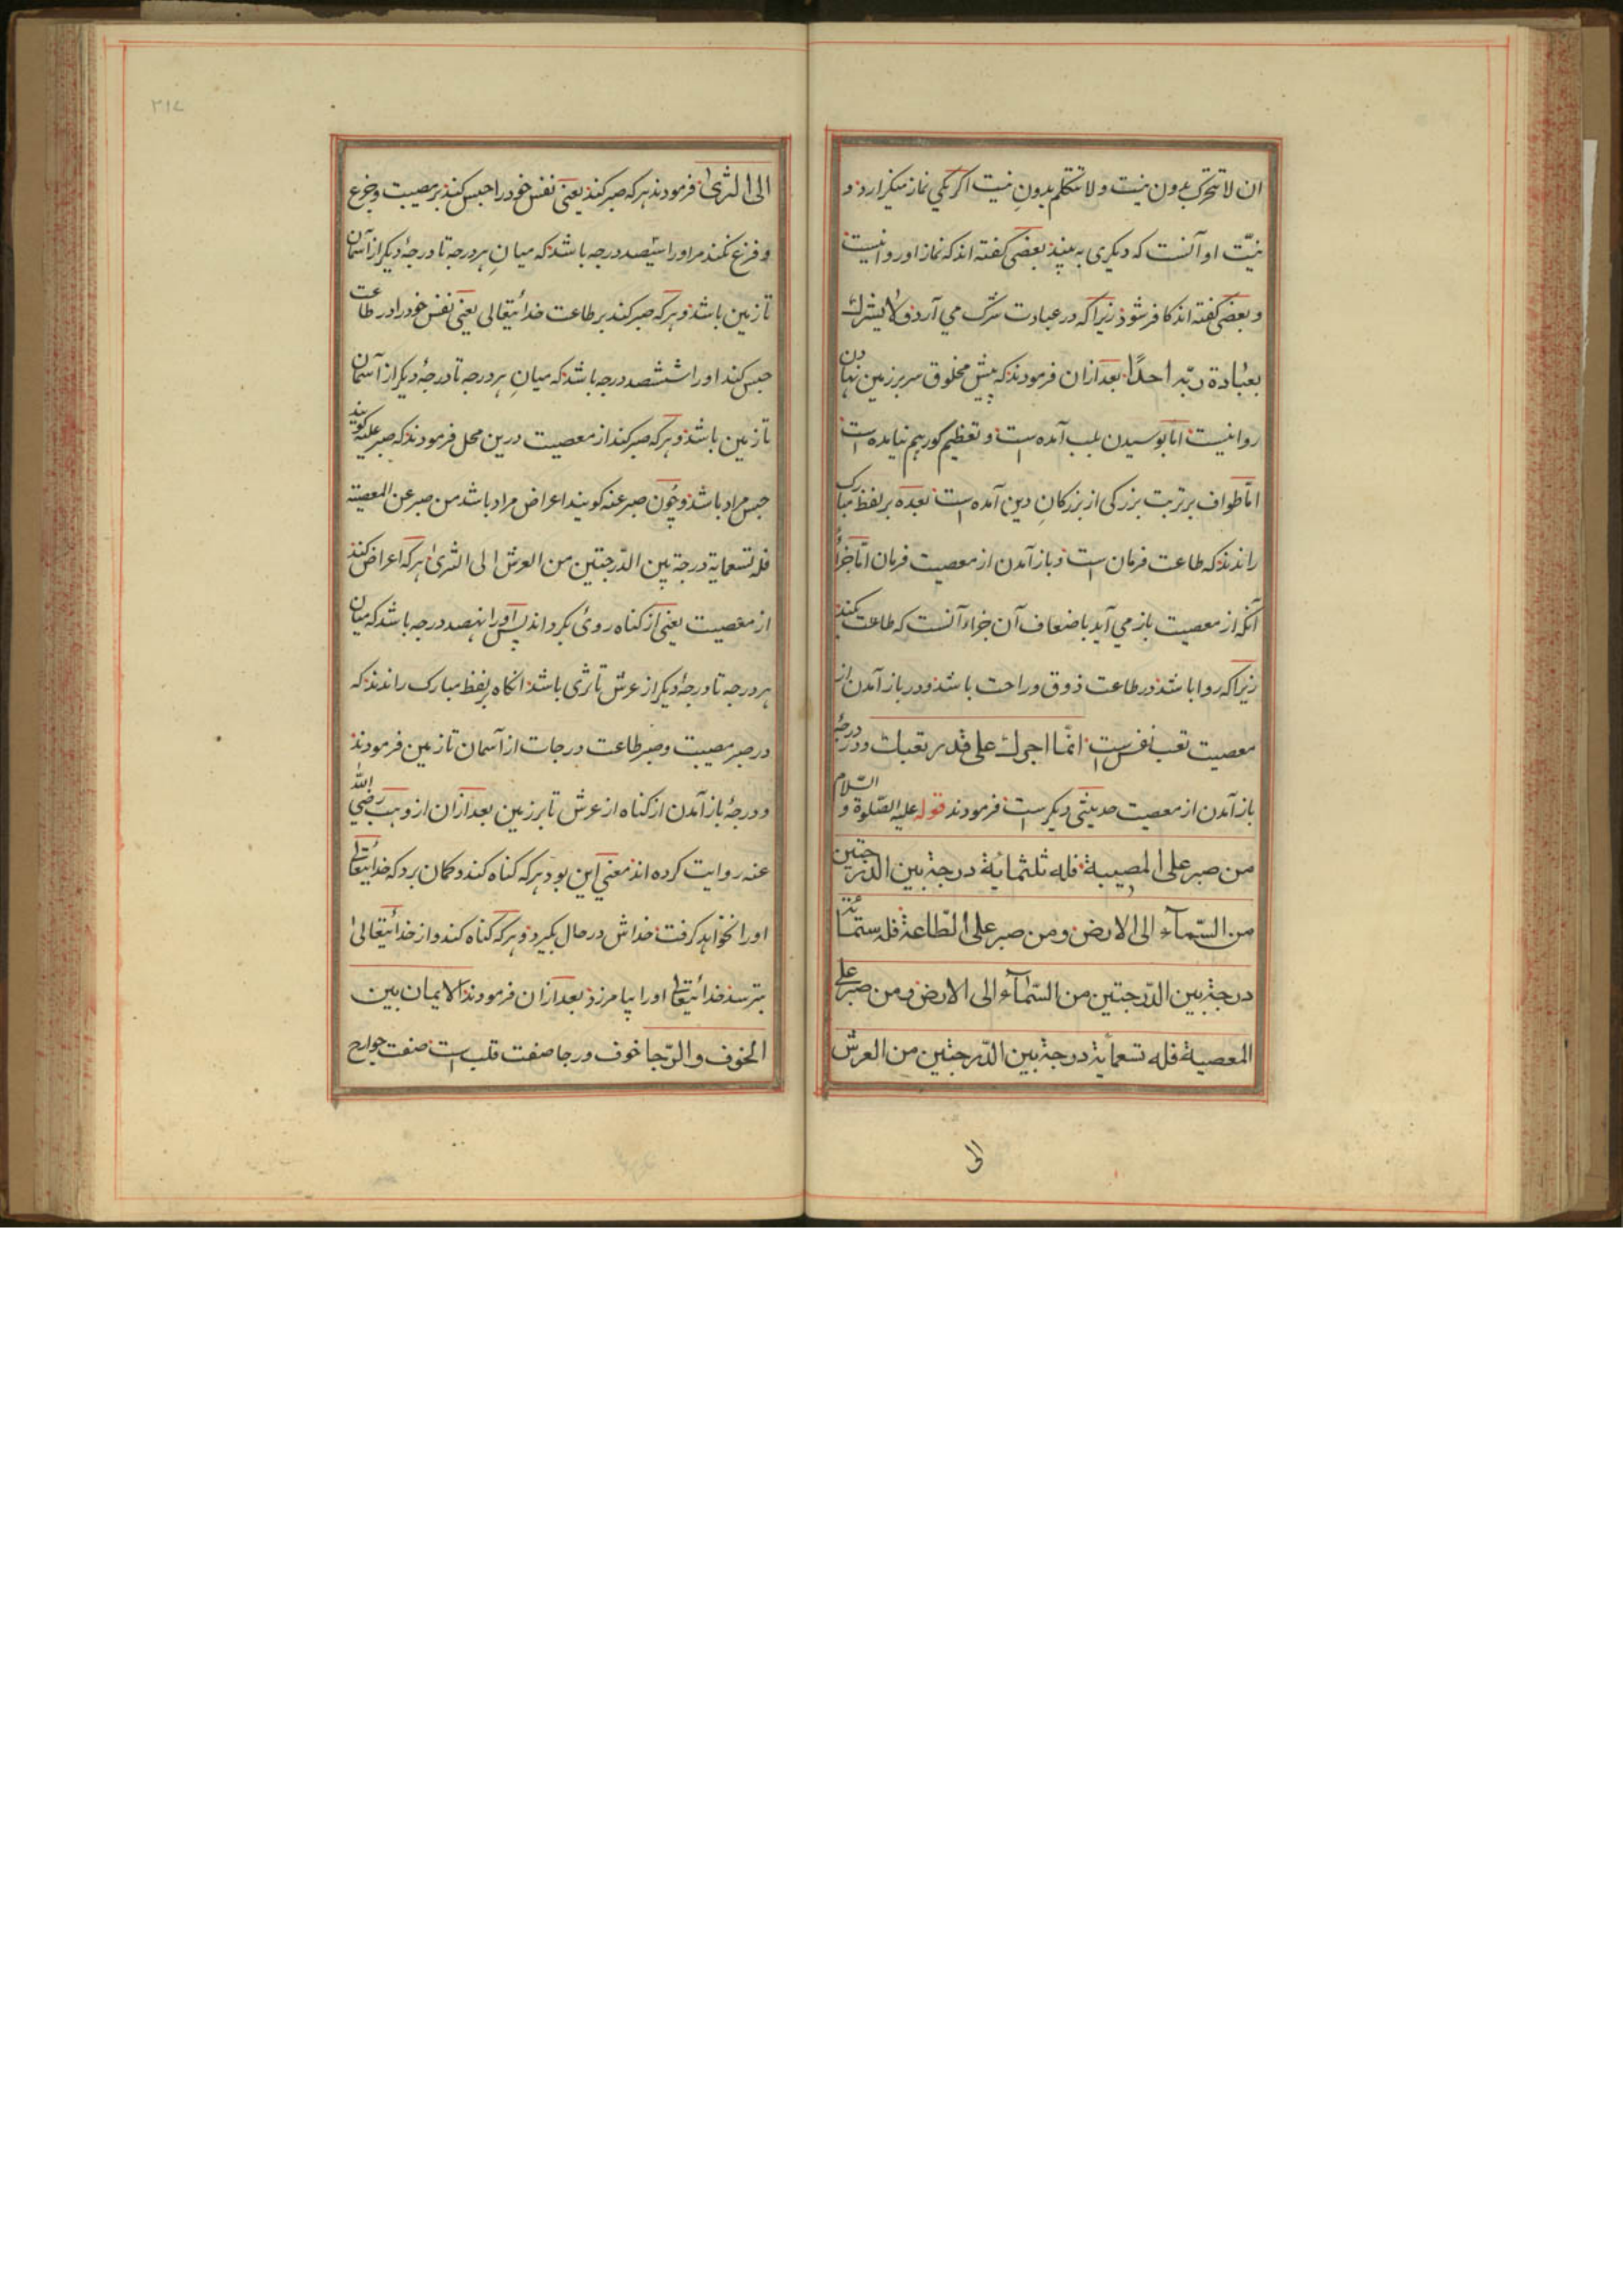 ان لا تتحرک بدون نیت و لا تتکلم بدون نیت اگر یکی نماز میگزارد و
نیّت او آنست که دیگری به بیند بعضی گفته اند که نماز او روا نیست
و بعضی گفته اند کافر شود زیرا که در عبادت شرک می آرد و لا یشرك
بعبادة ربّه احدًا بعد ازان فرمودند که پیش مخلوق سر بر زمین نهادن
روا نیست اما بوسیدن بلب آمده است و تعظیم گور هم نیامده است
امّا طواف بر تربت بزرگی از بزرگان دین آمده است بعده بر لفظ مبارک
راندند که طاعت فرمان است و باز آمدن از معصیت فرمان امّا جزا
آنکه از معصیت باز می آید باضعاف آن جزاء آنست که طاعت میکند
زیرا که روا باشد در طاعت ذوق و راحت باشد و در باز آمدن از
معصیت تعب نفس است انّما اجرك علی قدر تعبك و در درجهٔ
باز آمدن از معصیت حدیثی دیگر است فرمودند قوله علیه الصّلوة و السّلام
من صبر علی المصیبة فله ثلثمائة درجة بین الدّرجتین
من السّمآء الی الارض و من صبر علی الطّاعة فله ستمائة
درجة بین الدّرجتین من السّمآء الی الارض و من صبر علی
المعصیة فله تسعمأیة درجة بین الدّرجتین من العرش
الی
۳۱۷
الی الثری فرمودند هر که صبر کند یعنی نفس خود را حبس کند بر مصیبت و جزع
و فزع نکند مر او را سیصد درجه باشد که میان هر درجه تا درجهٔ دیگر از آسمان
تا زمین باشد و هر که صبر کند بر طاعت خدایتعالی یعنی نفس خود را در طاعت
حبس کند او را ششصد درجه باشد که میانِ هر درجه تا درجهٔ دیگر از آسمان
تا زمین باشد و هر که صبر کند از معصیت درین محل فرمودند که صبر علیه گویند
حبس مراد باشد و چون صبر عنه گویند اعراض مراد باشد من صبر عن المعصیة
فله تسعمایة درجة بین الدّرجتین من العرش الی الثری هر که اعراض کند
از معصیت یعنی از گناه روی بگرداند پس او را نهصد درجه باشد که میان
هر درجه تا درجهٔ دیگر از عرش تا ثری باشد انگاه بلفظ مبارک راندند که
در صبر مصیبت و صبر طاعت درجات از آسمان تا زمین فرمودند
و درجهٔ باز آمدن از گناه از عرش تا بر زمین بعد ازان از وهب رضی الله
عنه روایت کرده اند معنی این بود هر که گناه کند و گمان برد که خدایتعالی
او را نخواهد گرفت خداش در حال بگیرد و هر که گناه کند و از خدایتعالی
بترسد خدایتعالی او را بیامرزد بعد ازان فرمودند الایمان بین
الخوف و الرّجا خوف و رجا صفت قلب است صفت جوارح